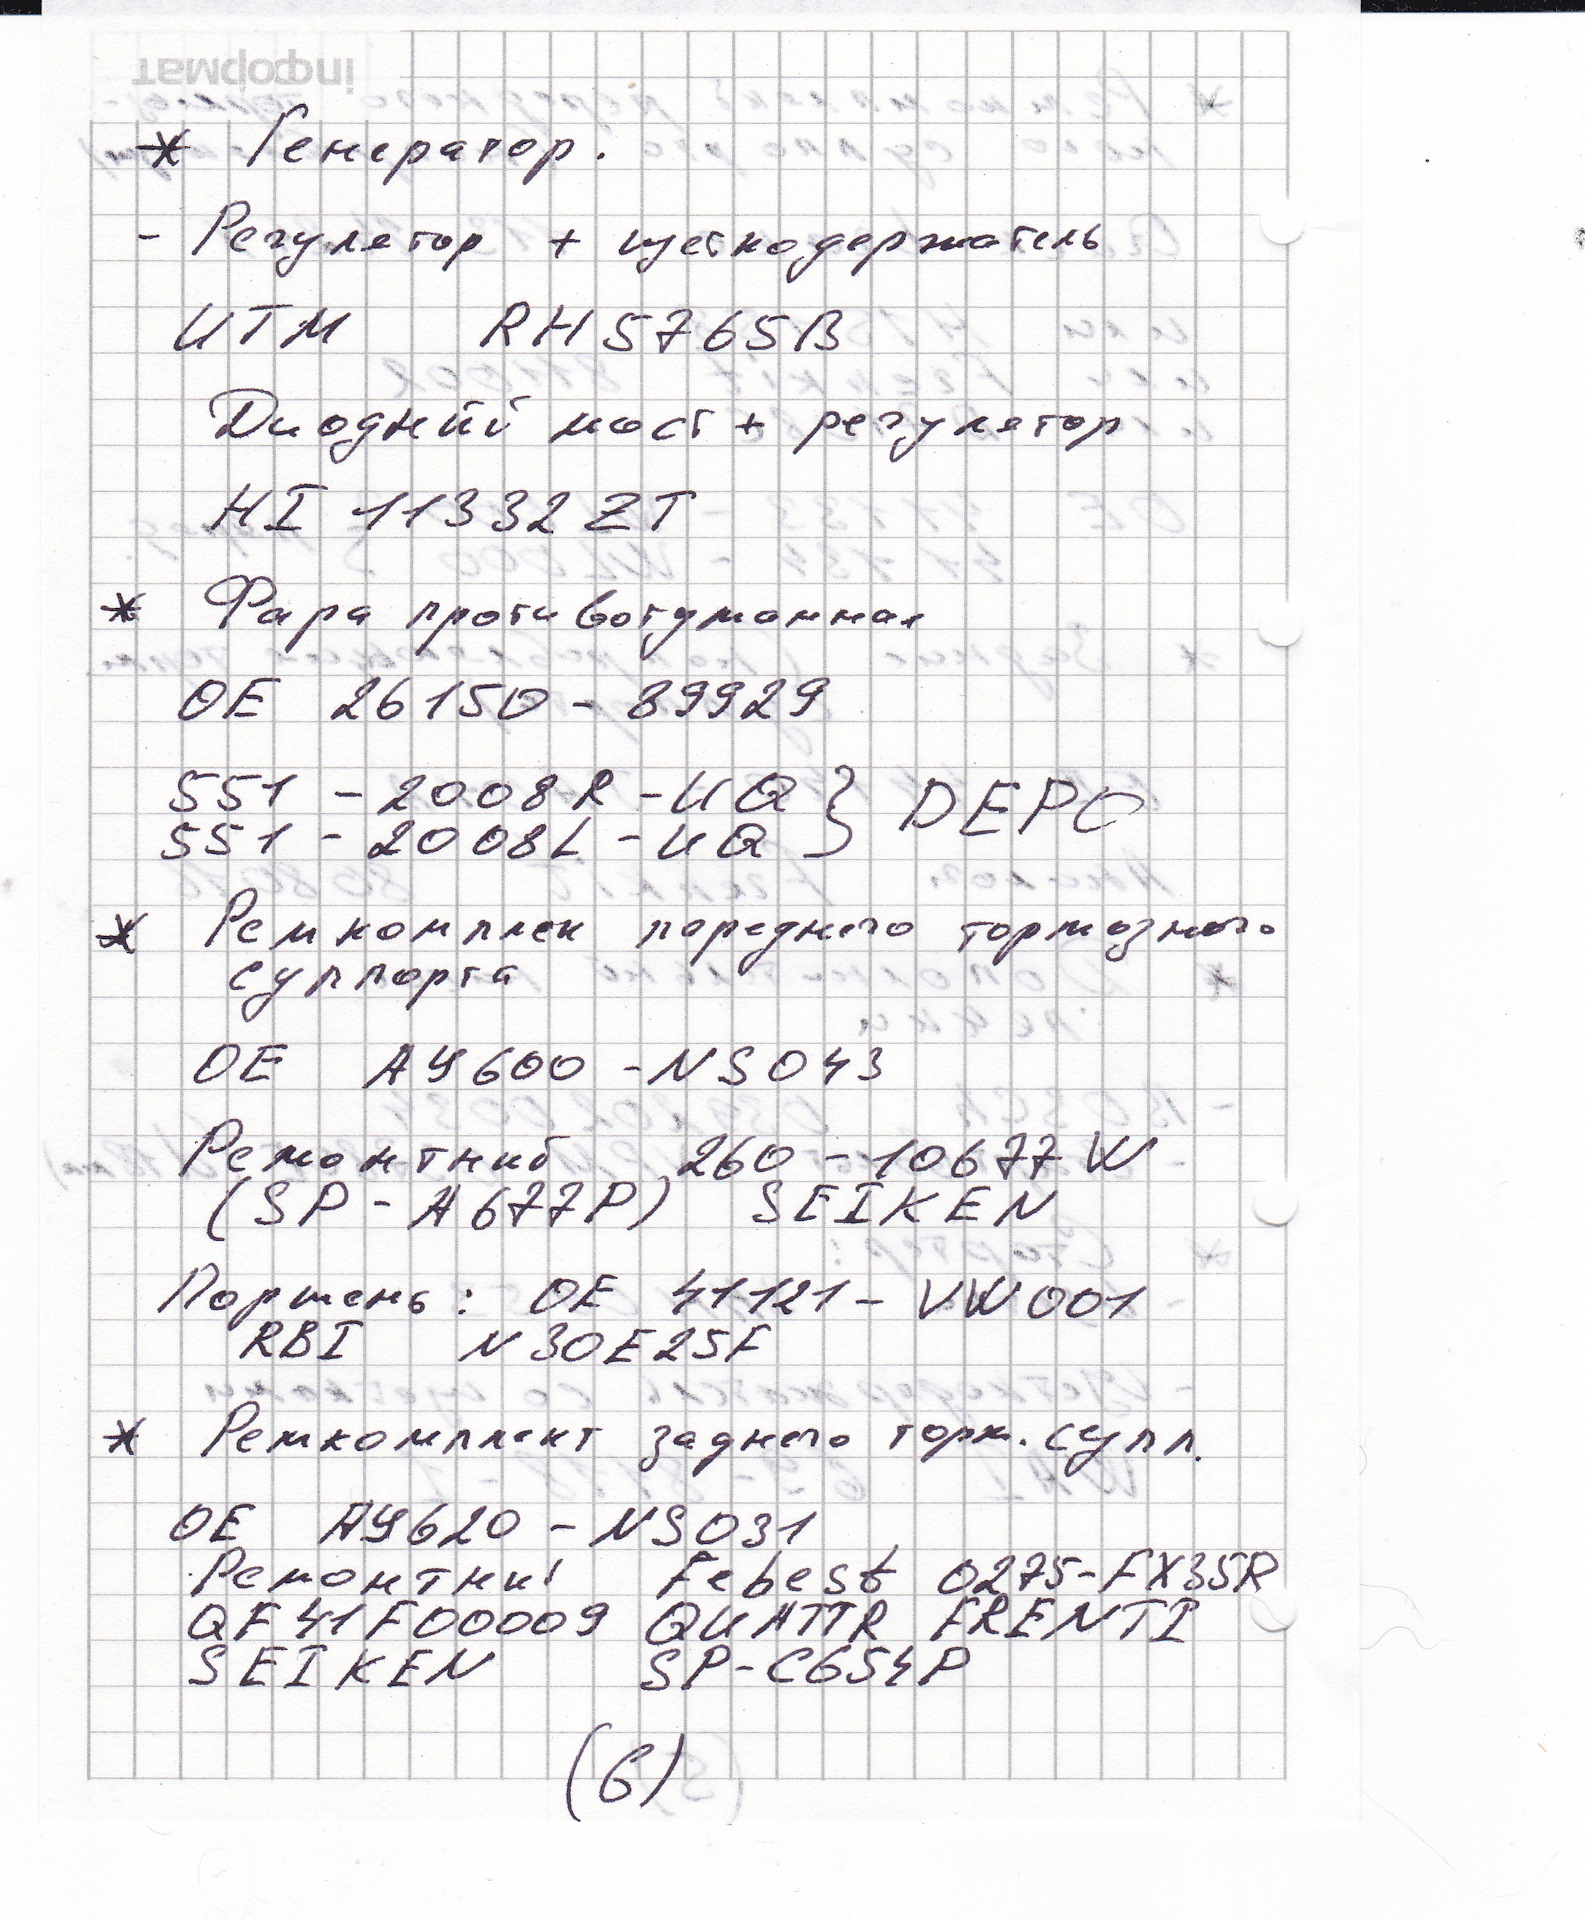 інформат
* Генератор.
- Регулятор + щеткодержатель
ИТМ RH5765B
Диодний мост + регулятор
HI 11332ZT
* Фара противотуманная
OE 26150-89929
551-2008R-UQ } DEPO
551-2008L-UQ
* Ремкомплек переднего тормозного
суппорта
OE AY600-NS043
Ремонтний 260-10677W
(SP-A677P) SEIKEN
Поршень: OE 41121-VW001
RBI N30E25F
* Ремкомплект заднего торм. супп.
OE AY620-NS031
Febest 0275-FX35R
QF41F00009 QUATTR FRENTI
SEIKEN SP-C654P
(6)